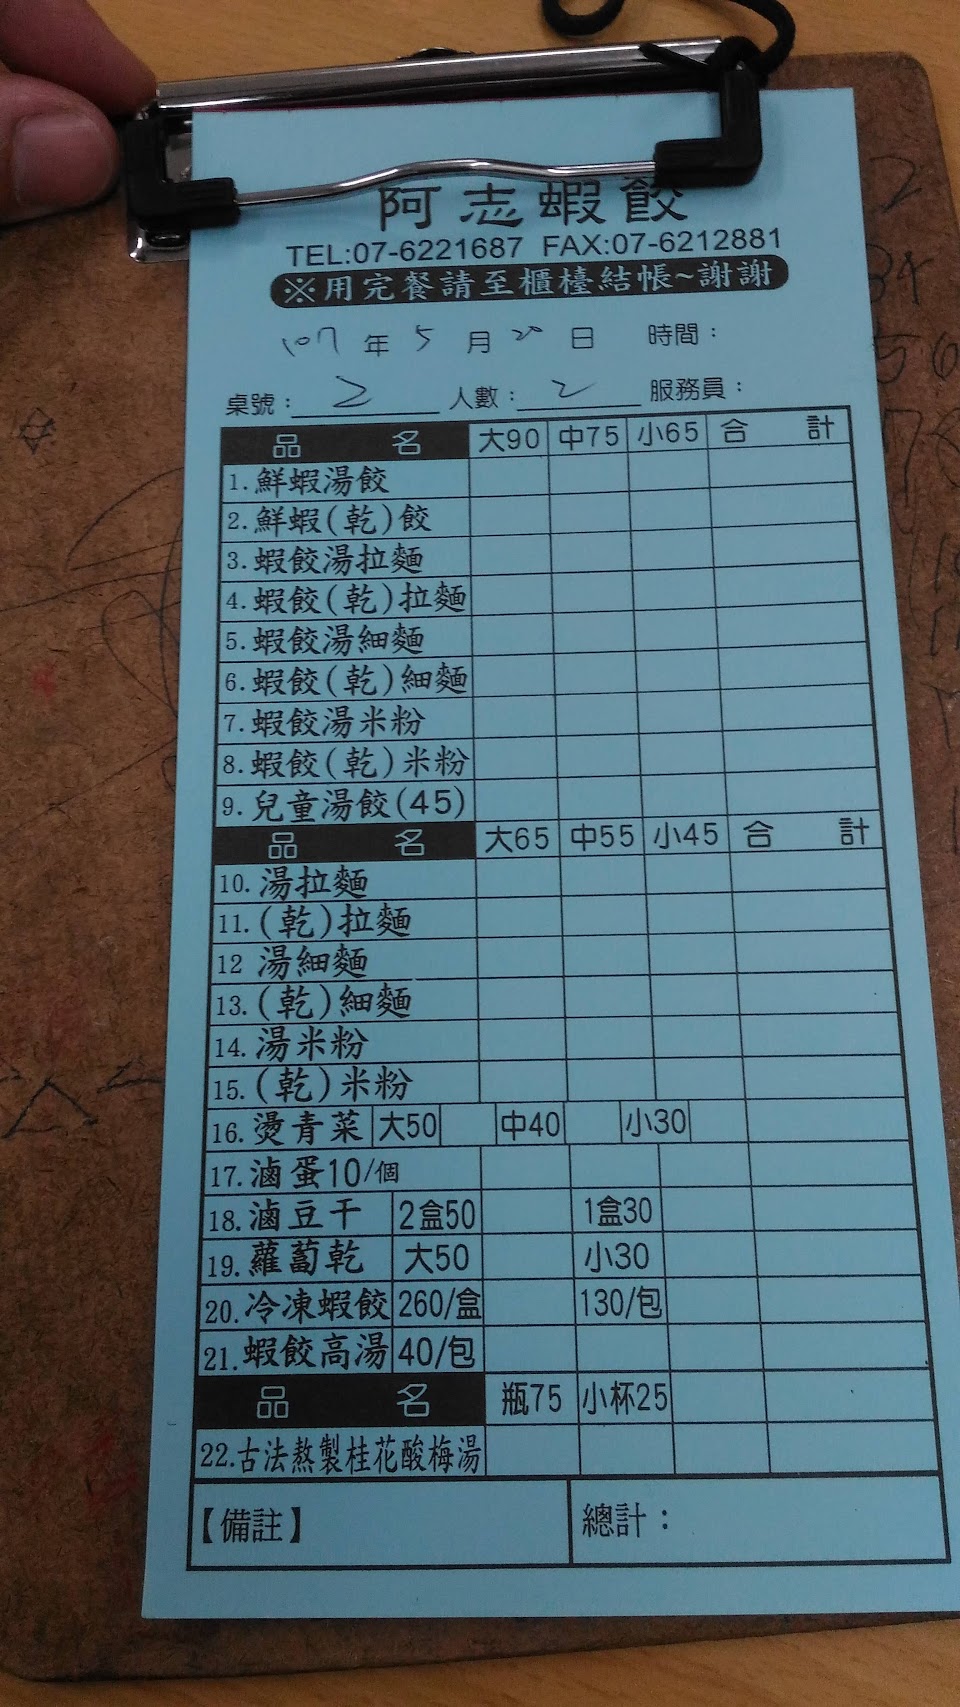 阿志蝦餃
TEL:07-6221687 FAX:07-6212881
※用完餐請至櫃檯結帳~謝謝
107年5月20日 時間：
桌號：2 人數：2 服務員：
品名 大90 中75 小65 合計
1.鮮蝦湯餃
2.鮮蝦(乾)餃
3.蝦餃湯拉麵
4.蝦餃(乾)拉麵
5.蝦餃湯細麵
6.蝦餃(乾)細麵
7.蝦餃湯米粉
8.蝦餃(乾)米粉
9.兒童湯餃(45)
品名 大65 中55 小45 合計
10.湯拉麵
11.(乾)拉麵
12 湯細麵
13.(乾)細麵
14.湯米粉
15.(乾)米粉
16.燙青菜 大50 中40 小30
17.滷蛋10/個
18.滷豆干 2盒50 1盒30
19.蘿蔔乾 大50 小30
20.冷凍蝦餃 260/盒 130/包
21.蝦餃高湯 40/包
品名 瓶75 小杯25
22.古法熬製桂花酸梅湯
【備註】 總計：